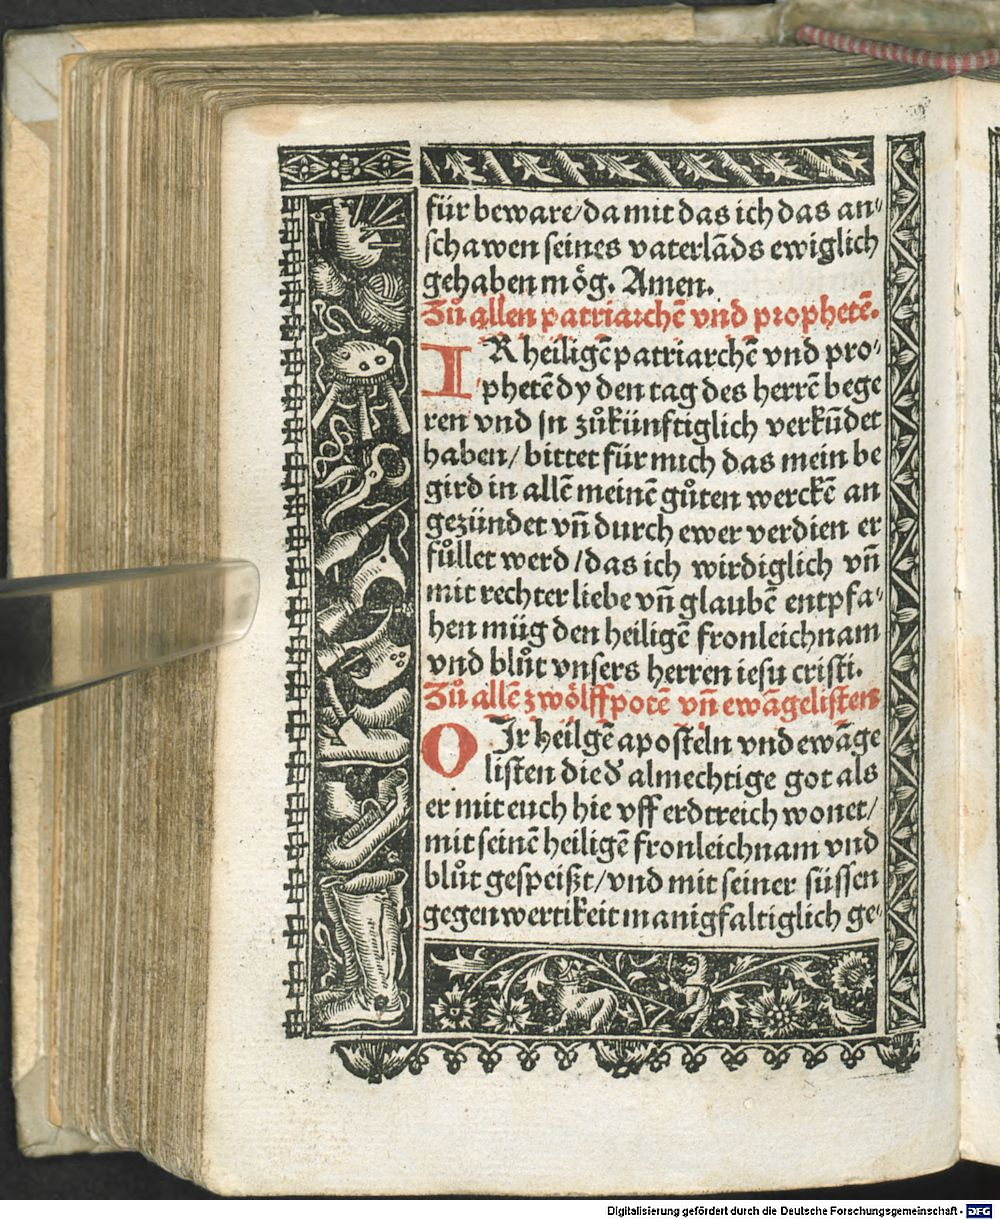 für beware/da mit das ich das an⸗
schawen seines vaterlãds ewiglich
gehaben mög. Amen.
Zů allen patriarchẽ vnd prophetẽ.
IR heiligẽ patriarchẽ vnd pro⸗
phetẽ dy den tag des herrẽ bege
ren vnd in zůkünftiglich verkũdet
haben/ bittet für mich das mein be
gird in allẽ meinẽ gůten werckẽ an
gezündet vñ durch ewer verdien er
fůllet werd /das ich wirdiglich vñ
mit rechter liebe vñ glaubẽ entpfa⸗
hen müg den heiligẽ fronleichnam
vnd blůt vnsers herren iesu cristi.
Zů allẽ zwölff potẽ vñ ewãgelisten
O Jr heilgẽ aposteln vnd ewãge
listen die d̓ almechtige got als
er mit euch hie vff erdtreich wonet/
mit seinẽ heiligẽ fronleichnam vnd
blůt gespeißt/vnd mit seiner süssen
gegenwertikeit manigfaltiglich ge⸗
Digitalisierung gefördert durch die Deutsche Forschungsgemeinschaft - DFG